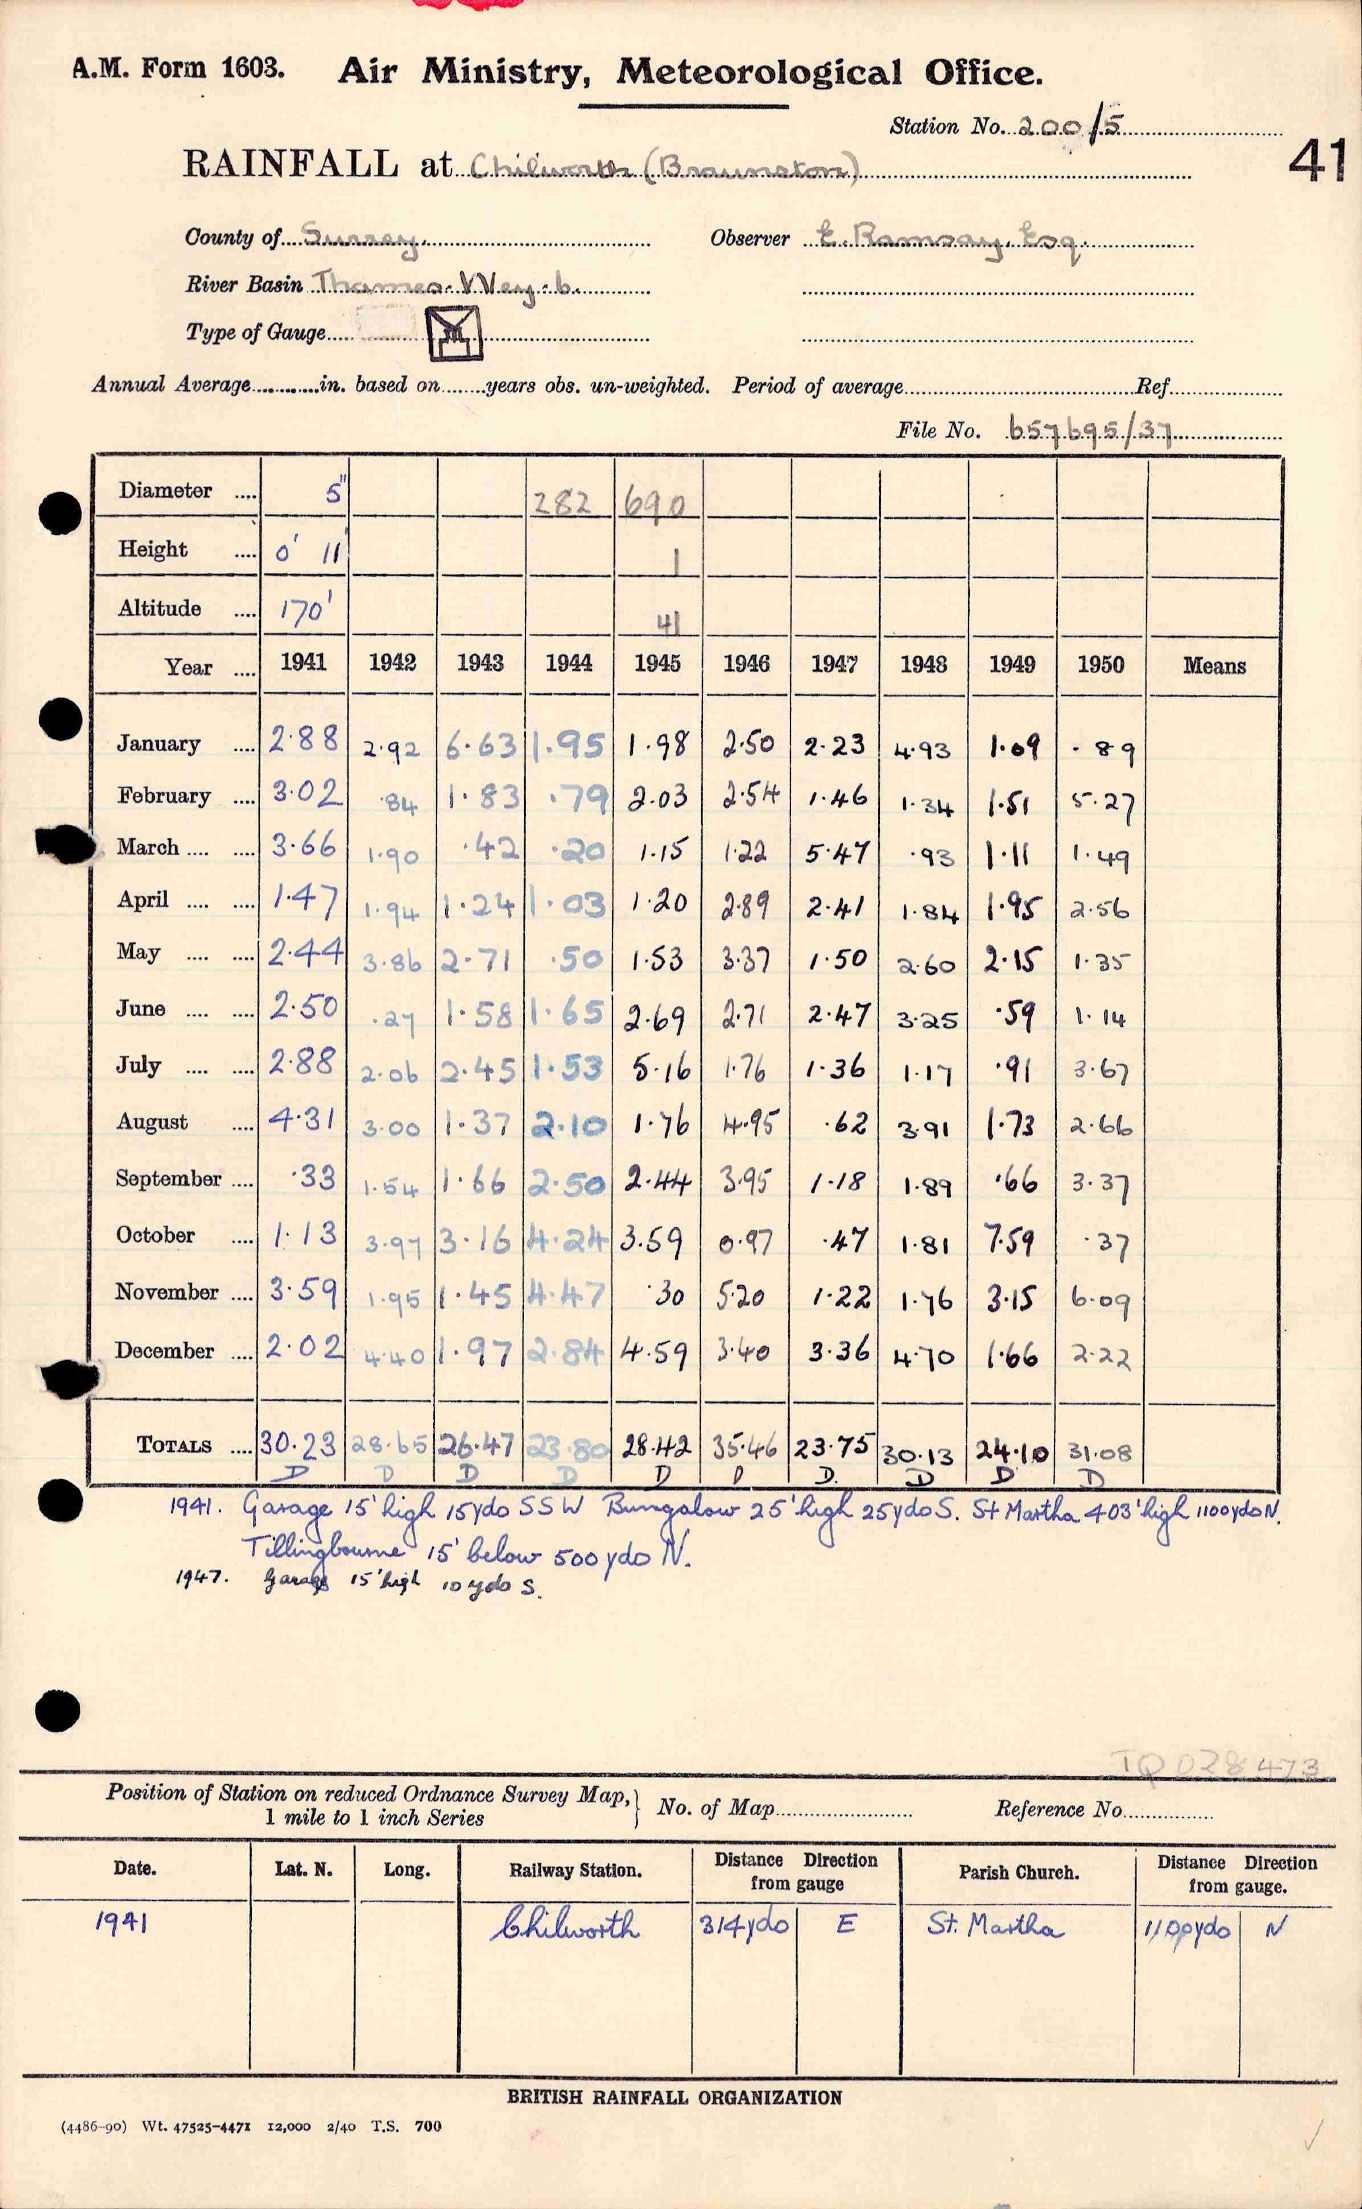 A.M. Form 1603. Air Ministry, Meteorological Office.
Station No. 200/5
41
RAINFALL at Chilworth (Braunston)
County of Surrey. Observer E. Ramsay, Esq.
River Basin Thames-Wey-b.
Type of Gauge M
Annual Average in. based on years obs. un-weighted. Period of average Ref
File No. 657695/37
Diameter 5" 282 690
Height 0' 11" 1
Altitude 170' 41
Year 1941 1942 1943 1944 1945 1946 1947 1948 1949 1950 Means
January 2.88 2.92 6.63 1.95 1.98 2.50 2.23 4.93 1.09 .89
February 3.02 .84 1.83 .79 2.03 2.54 1.46 1.34 1.51 5.27
March 3.66 1.90 .42 .20 1.15 1.22 5.47 .93 1.11 1.49
April 1.47 1.94 1.24 1.03 1.20 2.89 2.41 1.84 1.95 2.56
May 2.44 3.86 2.71 .50 1.53 3.37 1.50 2.60 2.15 1.35
June 2.50 .27 1.58 1.65 2.69 2.71 2.47 3.25 .59 1.14
July 2.88 2.06 2.45 1.53 5.16 1.76 1.36 1.17 .91 3.67
August 4.31 3.00 1.37 2.10 1.76 4.95 .62 3.91 1.73 2.66
September .33 1.54 1.66 2.50 2.44 3.95 1.18 1.89 .66 3.37
October 1.13 3.97 3.16 4.24 3.59 0.97 .47 1.81 7.59 .37
November 3.59 1.95 1.45 4.47 .30 5.20 1.22 1.76 3.15 6.09
December 2.02 4.40 1.97 2.84 4.59 3.40 3.36 4.70 1.66 2.22
TOTALS 30.23 28.65 26.47 23.80 28.42 35.46 23.75 30.13 24.10 31.08
D D D D D D D. D D D
1941. Garage 15' high 15yds SSW Bungalow 25' high 25yds S. St Martha 403' high 1100yds N.
Tillingbourne 15' below 500yds N.
1947. Garage 15' high 10 yds S.
TQ 028473
Position of Station on reduced Ordnance Survey Map, 1 mile to 1 inch Series } No. of Map Reference No.
Date. Lat. N. Long. Railway Station. Distance Direction from gauge Parish Church. Distance Direction from gauge.
1941 Chilworth 314yds E St. Martha 1100yds N
BRITISH RAINFALL ORGANIZATION
(4486-90) Wt. 47525-4471 12,000 2/40 T.S. 700